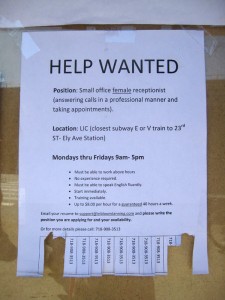 HELP WANTED
Position: Small office female receptionist
(answering calls in a professional manner and
taking appointments).
Location: LIC (closest subway E or V train to 23rd
ST- Ely Ave Station)
Mondays thru Fridays 9am- 5pm
• Must be able to work above hours
• No experience required.
• Must be able to speak English fluently.
• Start immediately.
• Training available
• Up to $8.00 per hour for a guaranteed 40 hours a week.
Email your resume to and please write the
position you are applying for and your availability.
Or for more details please call: 718-998-3513